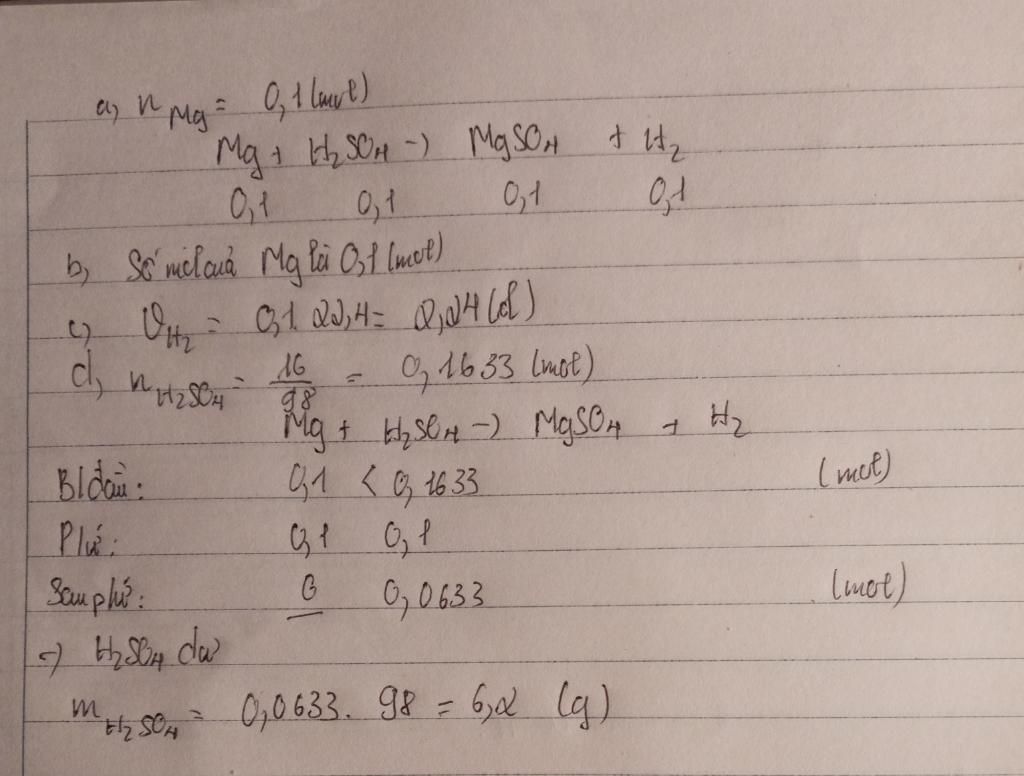 a, n Mg = 0,1 (mol)
Mg + H2SO4 -) MgSO4 + H2
0,1 0,1 0,1 0,1
b, Số mol của Mg là 0,1 (mol)
c, VH2 = 0,1. 22,4 = 2,24 (l)
d, nH2SO4 = 16/98 = 0,1633 (mol)
Mg + H2SO4 -) MgSO4 + H2
B/đầu: 0,1 < 0,1633 (mol)
P/ứ: 0,1 0,1
Sau p/ứ: 0 0,0633 (mol)
=) H2SO4 dư
mH2SO4 = 0,0633. 98 = 6,2 (g)